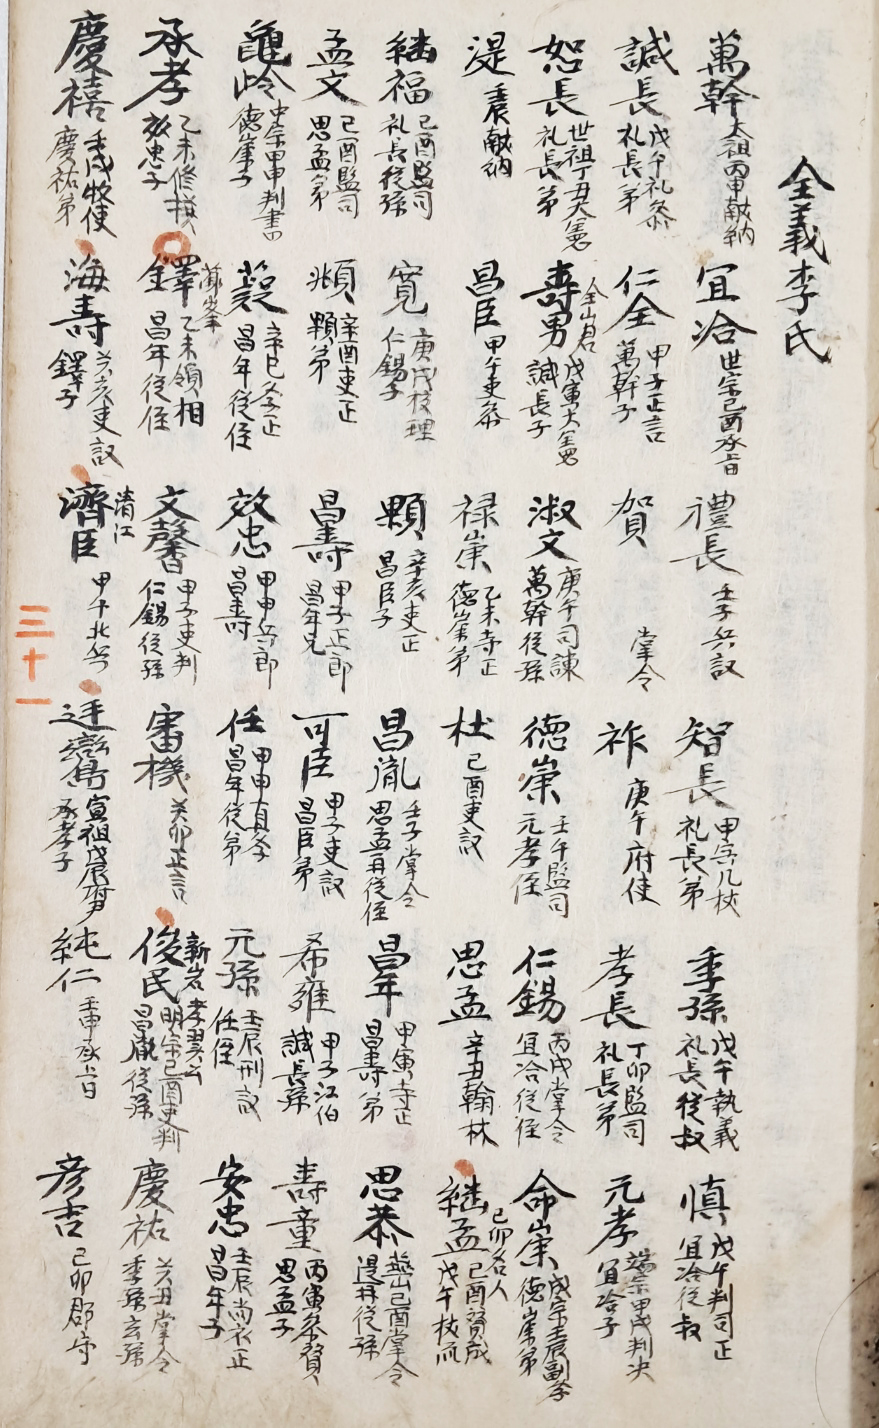 全義李氏
萬幹 太祖丙申献納 宜洽 世宗己酉承旨 禮長 壬子兵議 智長 甲寅几杖 礼長弟 季孫 戊午執義 礼長從叔 慎 戊午判司正 宜洽從叔
諴長 戊午礼參 礼長弟 仁全 甲子正言 萬幹子 賀 掌令 祚 庚午府使 孝長 丁卯監司 礼長弟 元孝 端宗甲戌判决 宜洽子
恕長 世祖丁丑大憲 礼長弟 壽男 全山君 戊寅大憲 諴長子 淑文 庚午司諫 萬幹從孫 德崇 壬午監司 元孝侄 仁錫 丙戌掌令 宜洽從侄 命崇 成宗壬辰副学 德崇弟
湜 壬辰献納 昌臣 甲午吏參 禄崇 乙未寺正 德崇弟 杜 己酉吏議 思孟 辛丑翰林 繼孟 己卯名人 己酉贊成 戊午校爪
繼福 己酉監司 礼長從孫 寬 庚戌校理 仁錫子 顆 辛亥吏正 昌臣子 昌胤 壬子掌令 思孟再從侄 昌年 甲寅寺正 昌壽弟 思恭 燕山己酉掌令 湜再從孫
孟文 己酉監司 思孟弟 頫 辛酉吏正 顆弟 昌壽 甲子正郎 昌年兄 可臣 甲子吏議 昌臣弟 希雍 甲子江伯 諴長孫 壽童 丙寅參贊 思孟子
龜岭 中宗甲申判書 德崇子 蓂 辛巳參正 昌年從侄 效忠 甲申兵郎 昌壽 任 甲申直學 昌年從弟 元孫 壬辰刑議 任侄 安忠 壬辰尚衣正 昌年子
承孝 乙未修撰 效忠子 鐸 乙未領相 昌年從侄 文馨 甲子吏判 仁錫從孫 審機 癸卯正言 俊民 新岩 孝翼云 明宗己酉吏判 昌胤從孫 慶祐 癸丑掌令 季孫玄孫
慶禧 壬戌牧使 慶祐弟 海壽 癸亥吏議 鐸子 濟臣 清江 甲午北兵 廷鸞 宣祖戊辰府尹 承孝子 純仁 壬申承旨 彦吉 己卯郡守
三十一